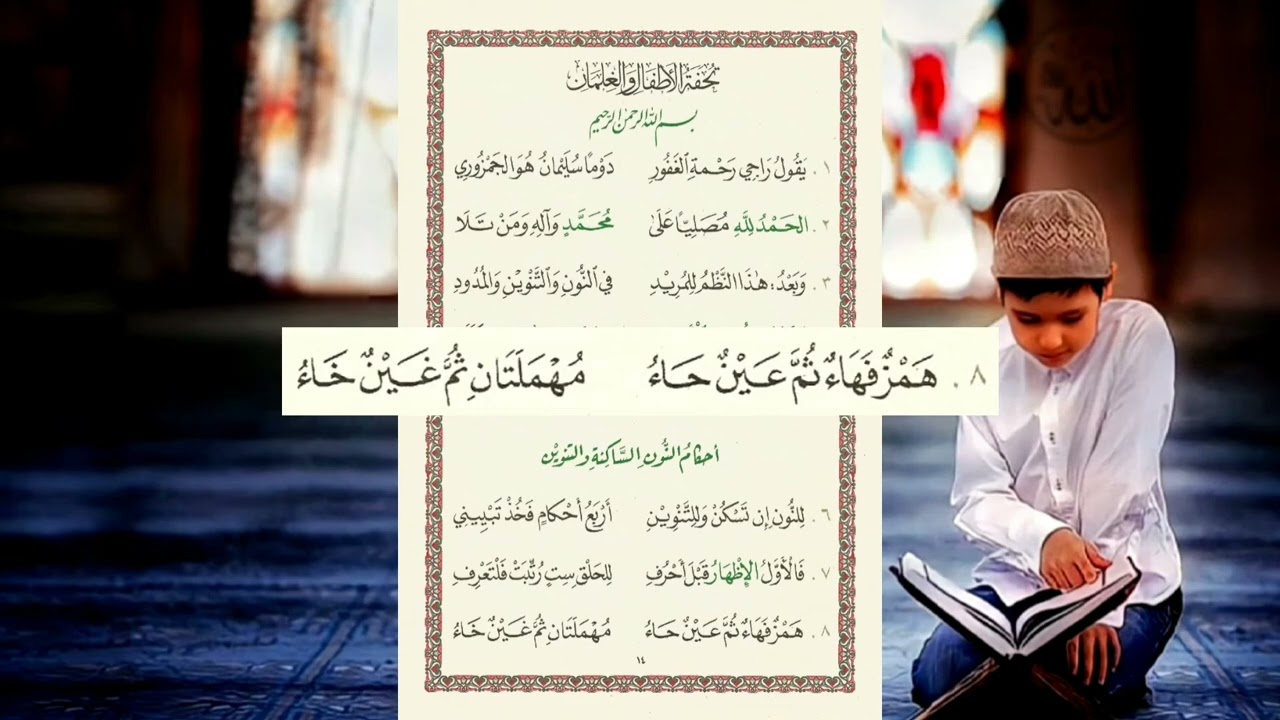 تحفة الأطفال والغلمان
بسم الله الرحمن الرحيم
١. يَقُولُ رَاجِي رَحْمةِ الغَفُورِ دَوْمًا سُلَيْمَانُ هُوَ الجَمْزُورِي
٢. الحَمْدُ لِلَّهِ مُصَلِّيًا عَلَى مُحَمَّدٍ وَآلِهِ وَمَنْ تَلَا
٣. وَبَعْدُ: هٰذَا النَّظْمُ لِلمُرِيْدِ فِي النُّونِ وَالتَّنْوِيْنِ وَالمُدُودِ
٨. هَمْزٌ فَهَاءٌ ثُمَّ عَيْنٌ حَاءُ مُهْمَلَتَانِ ثُمَّ غَيْنٌ خَاءُ
أحكامُ النُّونِ السَّاكِنةِ والتنوين
٦. لِلنُّونِ إِن تَسْكُنْ وَلِلتَّنْوِيْنِ أَرْبَعُ أَحْكَامٍ فَخُذْ تَبْيِيني
٧. فَالأَوَّلُ الإِظْهَارُ قَبْلَ أَحْرُفِ لِلحَلْقِ سِتٍ رُتِّبَتْ فَلْتَعْرِفِ
٨. هَمْزٌ فَهَاءٌ ثُمَّ عَيْنٌ حَاءُ مُهْمَلَتَانِ ثُمَّ غَيْنٌ خَاءُ
١٤